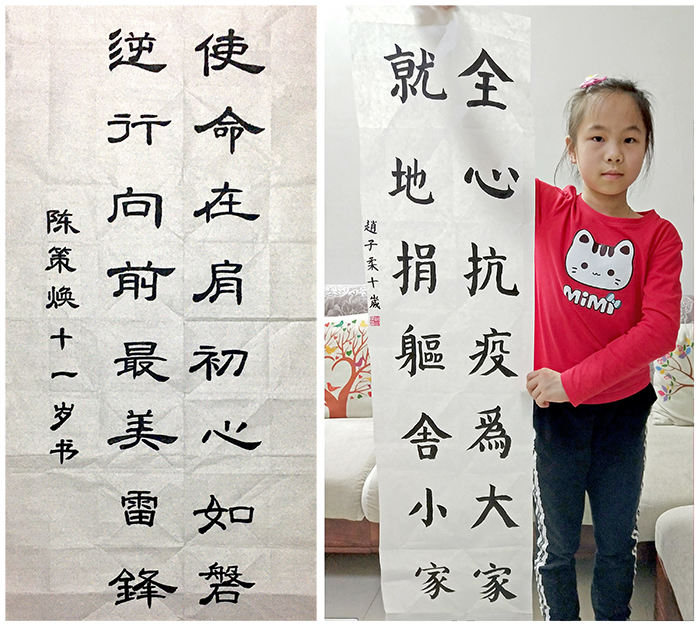 使命在肩初心如磐
逆行向前最美雷鋒
陈策焕十一岁书
全心抗疫為大家
就地捐軀舍小家
趙子柔十歲
MiMi